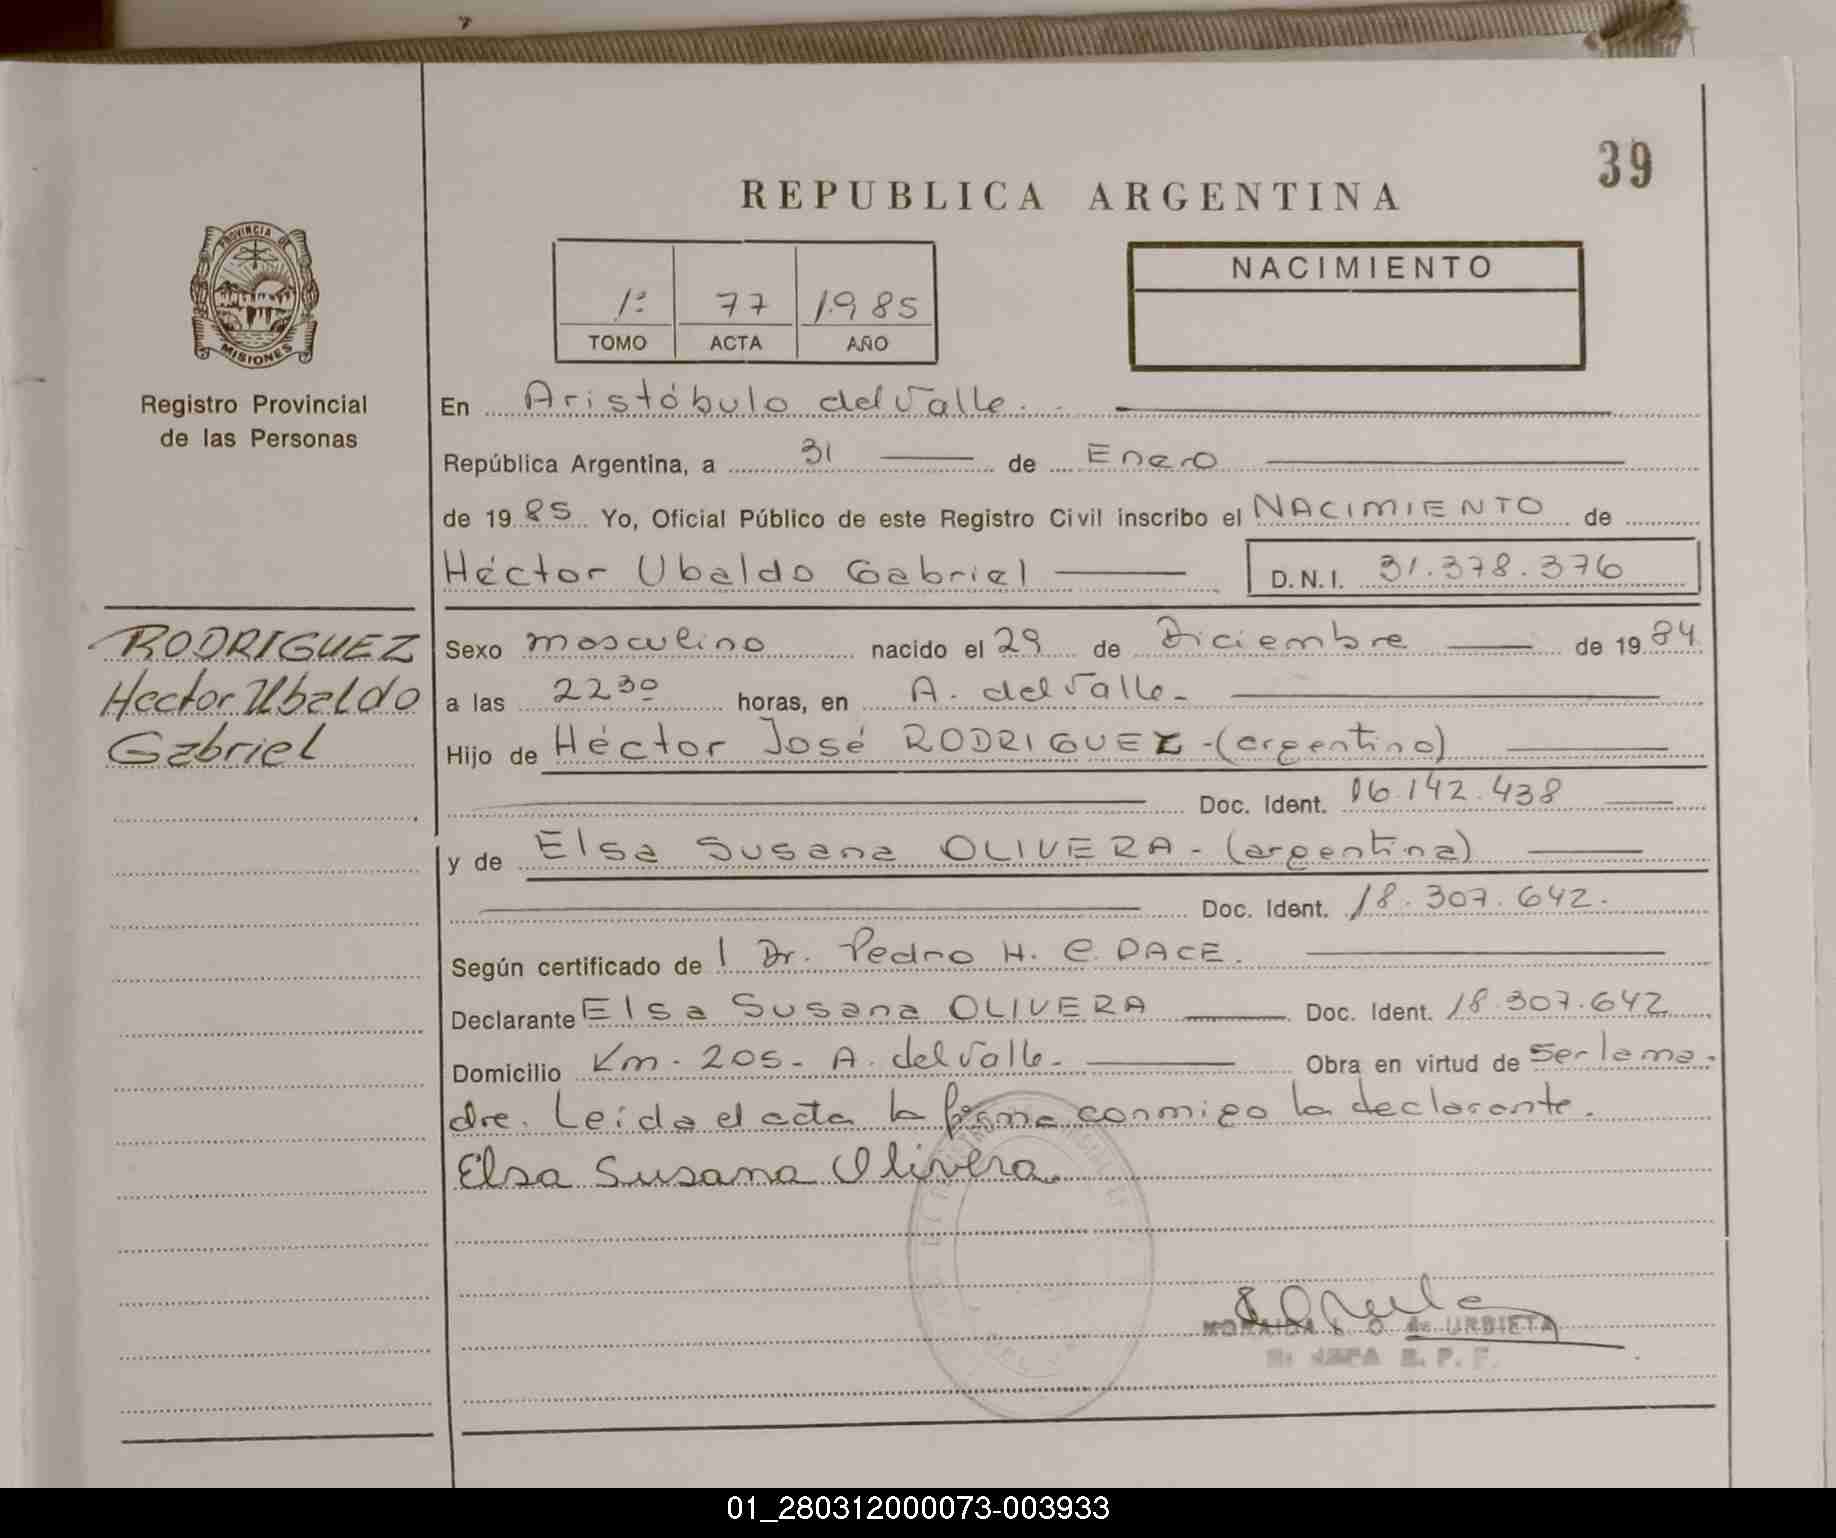 39
REPUBLICA ARGENTINA
PROVINCIA DE
MISIONES
Registro Provincial
de las Personas
1º 77 1985
TOMO ACTA AÑO
NACIMIENTO
En Aristóbulo del Valle.
República Argentina, a 31 de Enero
de 1985 Yo, Oficial Público de este Registro Civil inscribo el NACIMIENTO de
Héctor Ubaldo Gabriel D.N.I. 31.378.376
RODRIGUEZ
Hector Ubaldo
Gabriel
Sexo masculino nacido el 29 de Diciembre de 1984
a las 22 30 horas, en A. del Valle-
Hijo de Héctor José RODRIGUEZ -(argentino)
Doc. Ident. 16.142.438
y de Elsa Susana OLIVERA - (argentina)
Doc. Ident. 18.307.642.
Según certificado de l Dr. Pedro H. C. DACE.
Declarante Elsa Susana OLIVERA Doc. Ident. 18.307.642
Domicilio Km - 205 - A. del Valle- Obra en virtud de ser la ma-
dre. Leída el acta la firma conmigo la declarante.
Elsa Susana Olivera
URBIETA
01_280312000073-003933